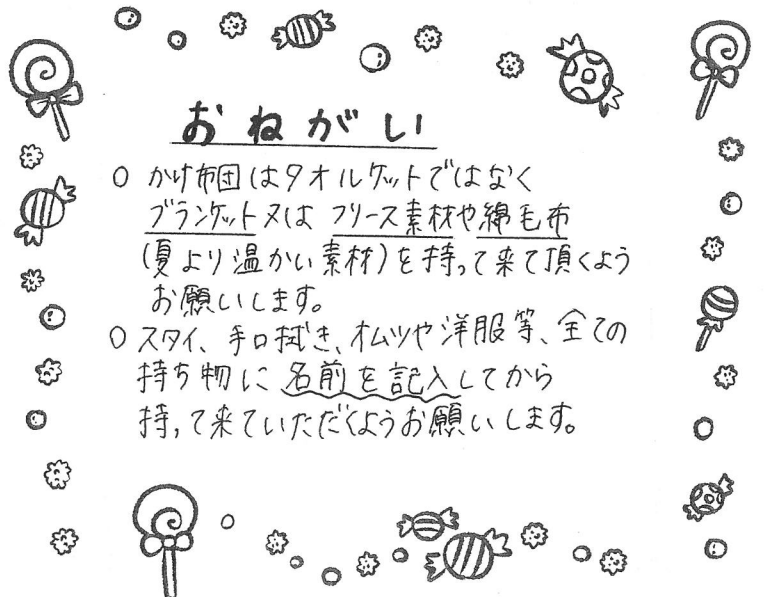 おねがい
○ かけ布団はタオルケットではなく
ブランケット又は フリース素材や綿毛布
(夏より温かい素材)を持って来て頂くよう
お願いします。
○ スタイ、手口拭き、オムツや洋服等、全ての
持ち物に 名前を記入してから
持って来ていただくようお願いします。